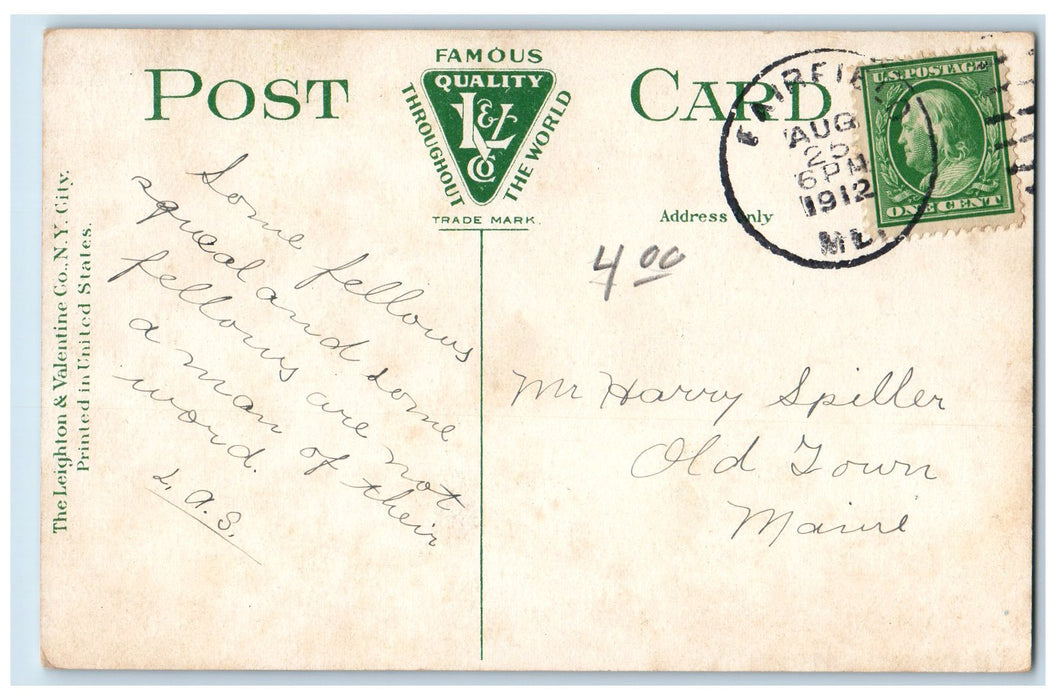 POST CARD
FAMOUS
QUALITY
L & V
Co
THROUGHOUT THE WORLD
TRADE MARK.
FAIRFIELD
AUG
25
6 PM
1912
ME.
U.S. POSTAGE
ONE CENT
Address Only
4 00
The Leighton & Valentine Co., N.Y. City.
Printed in United States.
Some fellows
squeal and some
fellows are not
a man of their
word.
L. A. S.
Mr Harry Spiller
Old Town
Maine